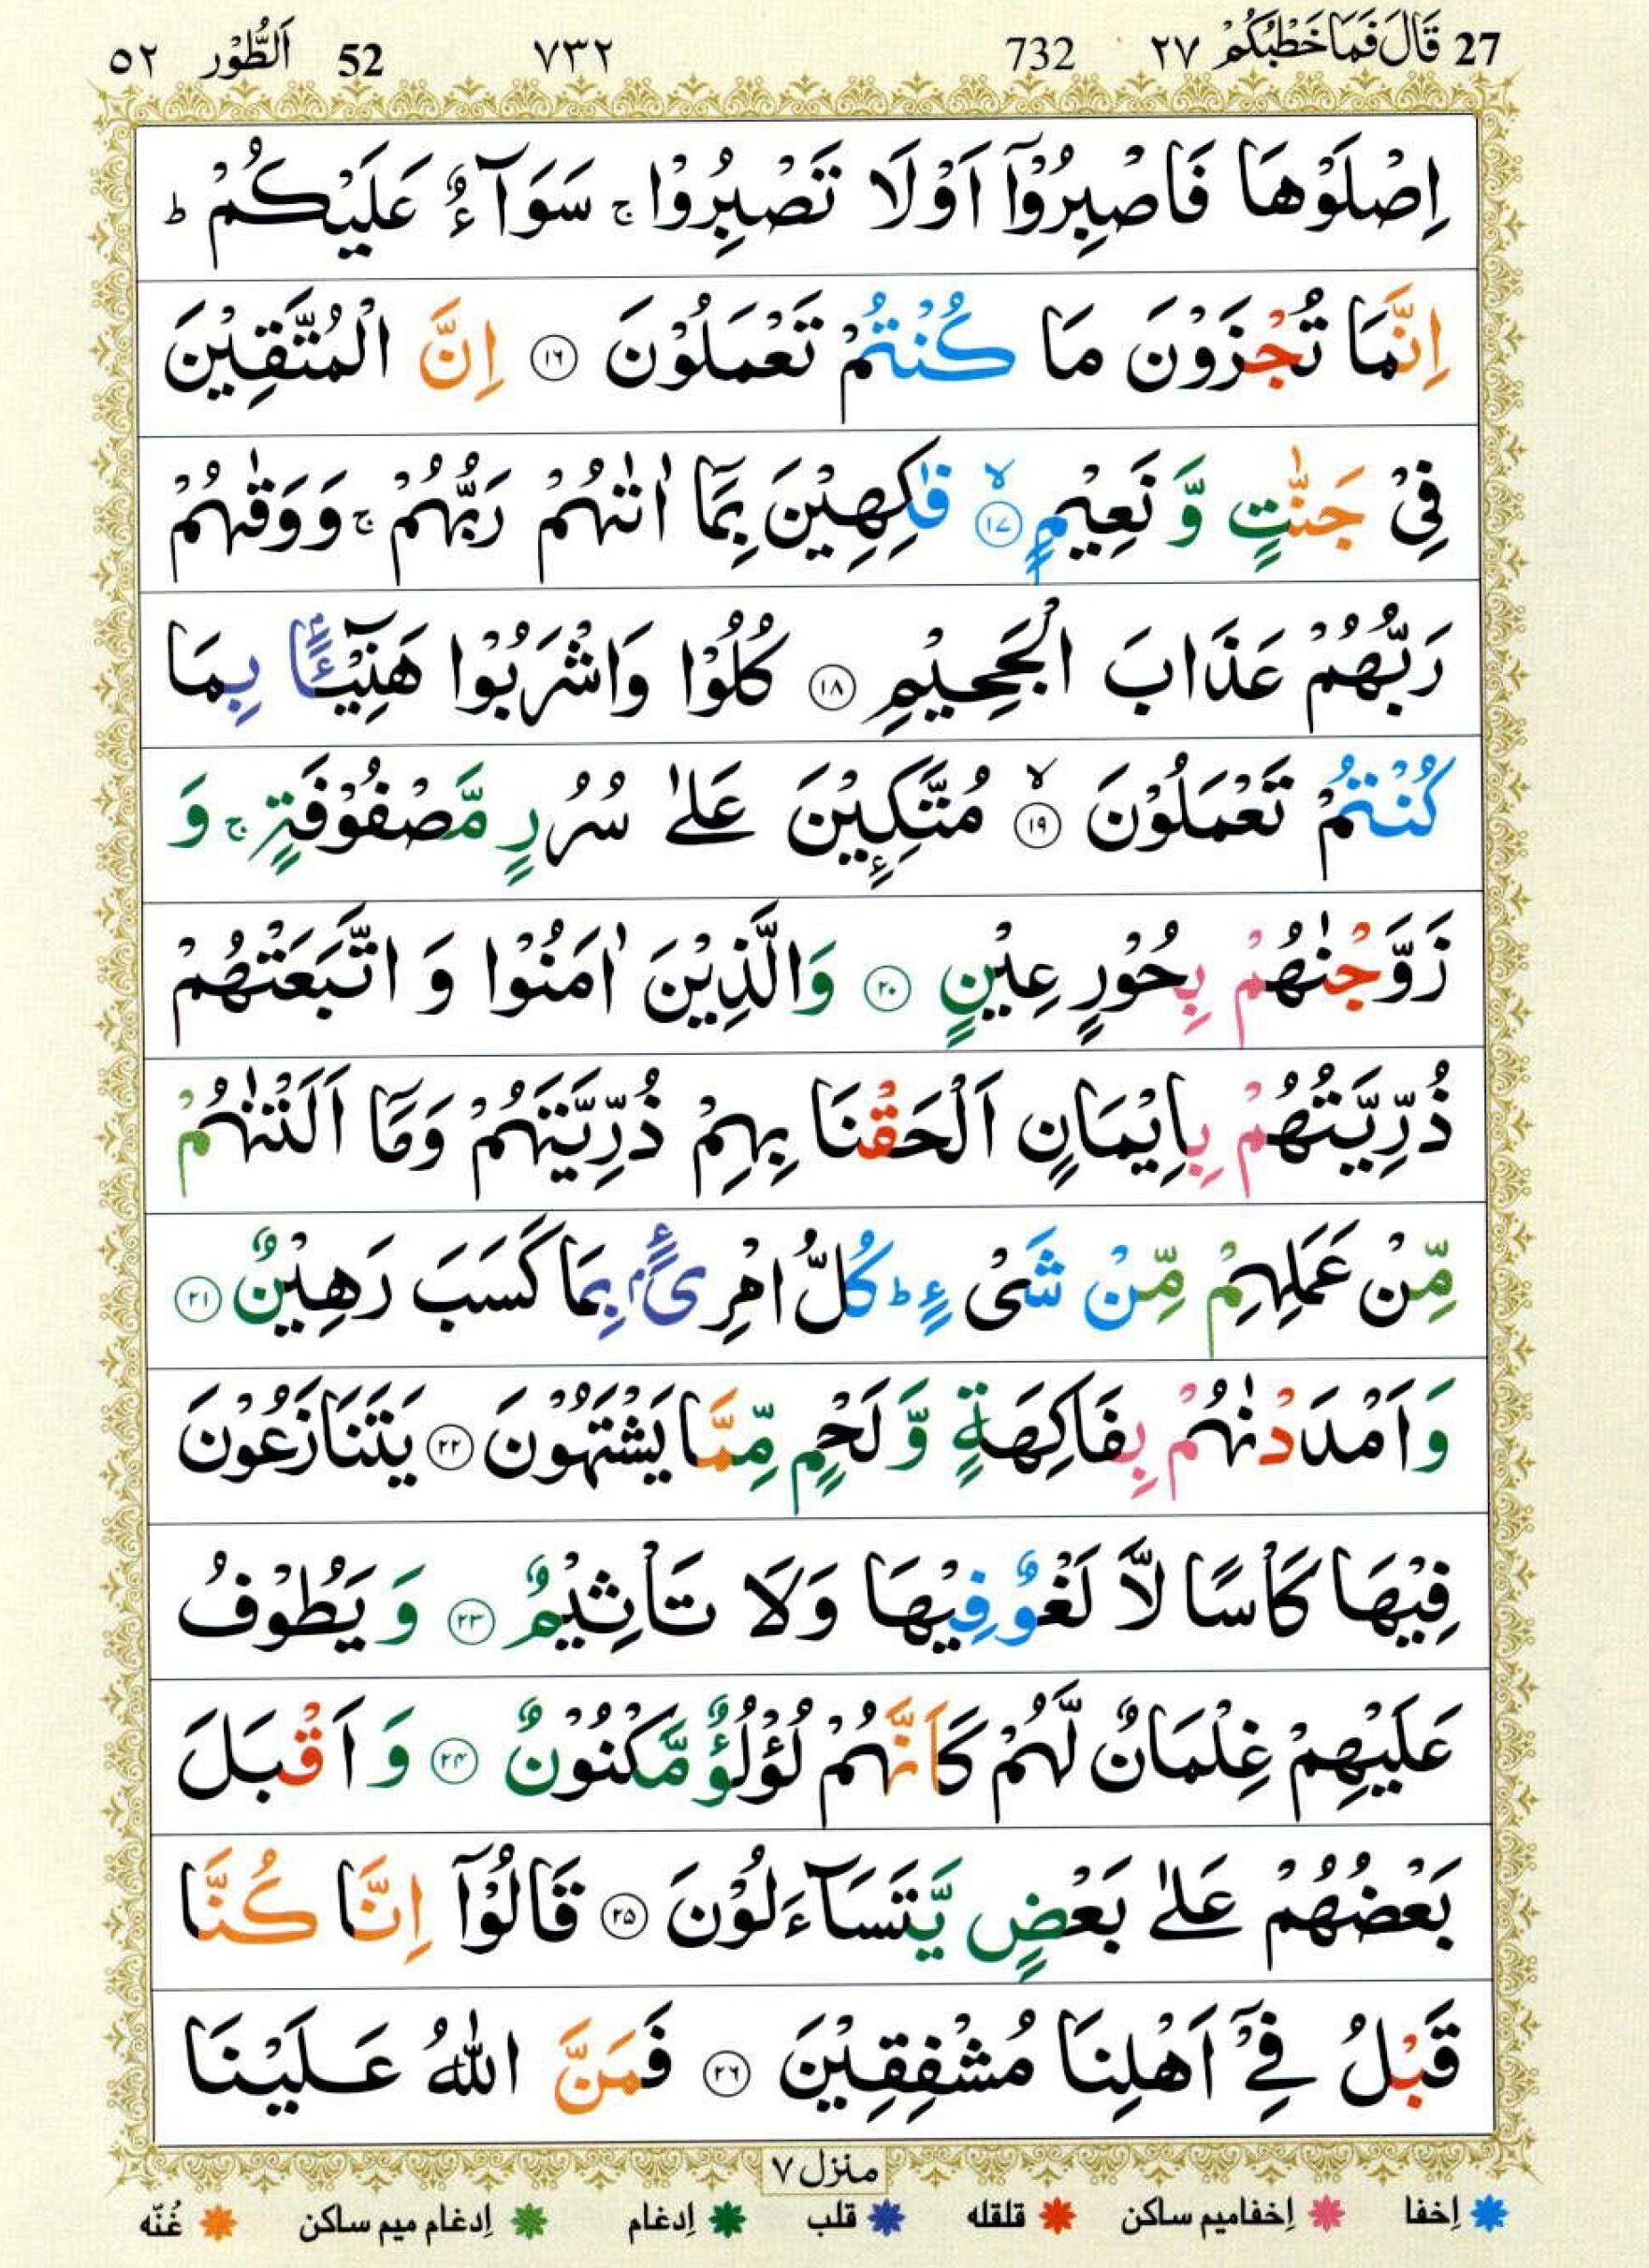 27 قَالَ فَمَا خَطْبُكُمْ ٢٧ 732 ٧٣٢ 52 اَلطُّوْر ٥٢
اِصْلَوْهَا فَاصْبِرُوْۤا اَوْلَا تَصْبِرُوْا ۚ سَوَآءٌ عَلَيْكُمْ ؕ
اِنَّمَا تُجْزَوْنَ مَا كُنْتُمْ تَعْمَلُوْنَ ﴿۱۶﴾ اِنَّ الْمُتَّقِيْنَ
فِىْ جَنّٰتٍ وَّ نَعِيْمٍ ۙ﴿۱۷﴾ فٰكِهِيْنَ بِمَاۤ اٰتٰٮهُمْ رَبُّهُمْ ۚ وَوَقٰٮهُمْ
رَبُّهُمْ عَذَابَ الْجَحِيْمِ ﴿۱۸﴾ كُلُوْا وَاشْرَبُوْا هَنِيْٓئًۢا بِمَا
كُنْتُمْ تَعْمَلُوْنَ ۙ﴿۱۹﴾ مُتَّكِـِٕيْنَ عَلٰى سُرُرٍ مَّصْفُوْفَةٍ ۚ وَ
زَوَّجْنٰهُمْ بِحُوْرٍ عِيْنٍ ﴿۲۰﴾ وَالَّذِيْنَ اٰمَنُوْا وَ اتَّبَعَتْهُمْ
ذُرِّيَّتُهُمْ بِاِيْمَانٍ اَلْحَقْنَا بِهِمْ ذُرِّيَّتَهُمْ وَمَاۤ اَلَتْنٰهُمْ
مِّنْ عَمَلِهِمْ مِّنْ شَىْءٍ ؕ كُلُّ امْرِیًٴۢ بِمَا كَسَبَ رَهِيْنٌ ﴿۲۱﴾
وَاَمْدَدْنٰهُمْ بِفَاكِهَةٍ وَّ لَحْمٍ مِّمَّا يَشْتَهُوْنَ ﴿۲۲﴾ يَتَنَازَعُوْنَ
فِيْهَا كَاْسًا لَّا لَغْوٌ فِيْهَا وَلَا تَاْثِيْمٌ ﴿۲۳﴾ وَ يَطُوْفُ
عَلَيْهِمْ غِلْمَانٌ لَّهُمْ كَاَنَّهُمْ لُؤْلُؤٌ مَّكْنُوْنٌ ﴿۲۴﴾ وَ اَقْبَلَ
بَعْضُهُمْ عَلٰى بَعْضٍ يَّتَسَآءَلُوْنَ ﴿۲۵﴾ قَالُوْۤا اِنَّا كُنَّا
قَبْلُ فِىْۤ اَهْلِنَا مُشْفِقِيْنَ ﴿۲۶﴾ فَمَنَّ اللّٰهُ عَلَيْنَا
منزل ٧
اِخفا اِخفامیم ساکن قلقله قلب اِدغام اِدغام میم ساکن غُنّه